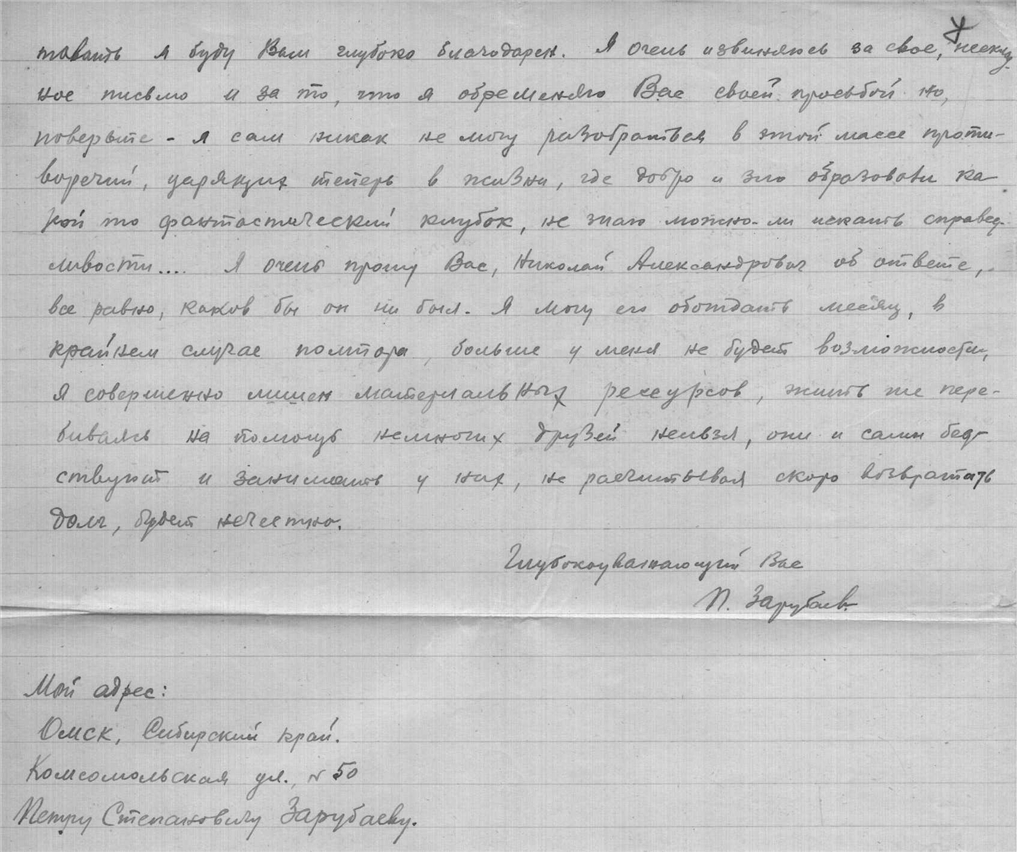 товать я буду Вам глубоко благодарен. Я очень извиняюсь за свое, нескла-
ное письмо и за то, что я обременяю Вас своей просьбой но,
поверьте - я сам никак не могу разобраться в этой массе проти-
воречий, царящих теперь в жизни, где добро и зло образовали ка
кой то фантастический клубок, не знаю можно-ли искать справед-
ливости.... Я очень прошу Вас, Николай Александрович об ответе,
все равно, каков бы он ни был. Я могу его обождать месяц, в
крайнем случае полтора, больше у меня не будет возможности,
я совершенно лишен материальных рессурсов, жить же пере-
биваясь на помощь немногих друзей нельзя, они и сами бед-
ствуют и занимать у них, не расчитывая скоро возвратать
долг, будет нечестно.
Глубокоуважающий Вас
П. Зарубаев.
Мой адрес:
Омск, Сибирский край.
Комсомольская ул., № 50
Петру Степановичу Зарубаеву.